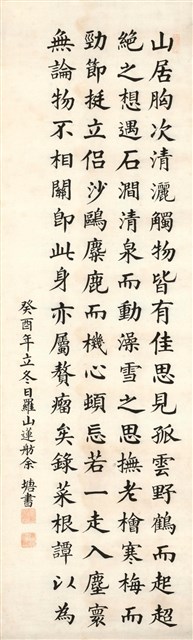 山居胸次清灑觸物皆有佳思見孤雲野鶴而起超
絶之想遇石澗清泉而動澡雪之思撫老檜寒梅而
勁節挺立侣沙鷗麋鹿而機心頓忘若一走入塵寰
無論物不相關卽此身亦屬贅瘤矣錄菜根譚以為
癸酉年立冬日羅山蓮舫余塘書